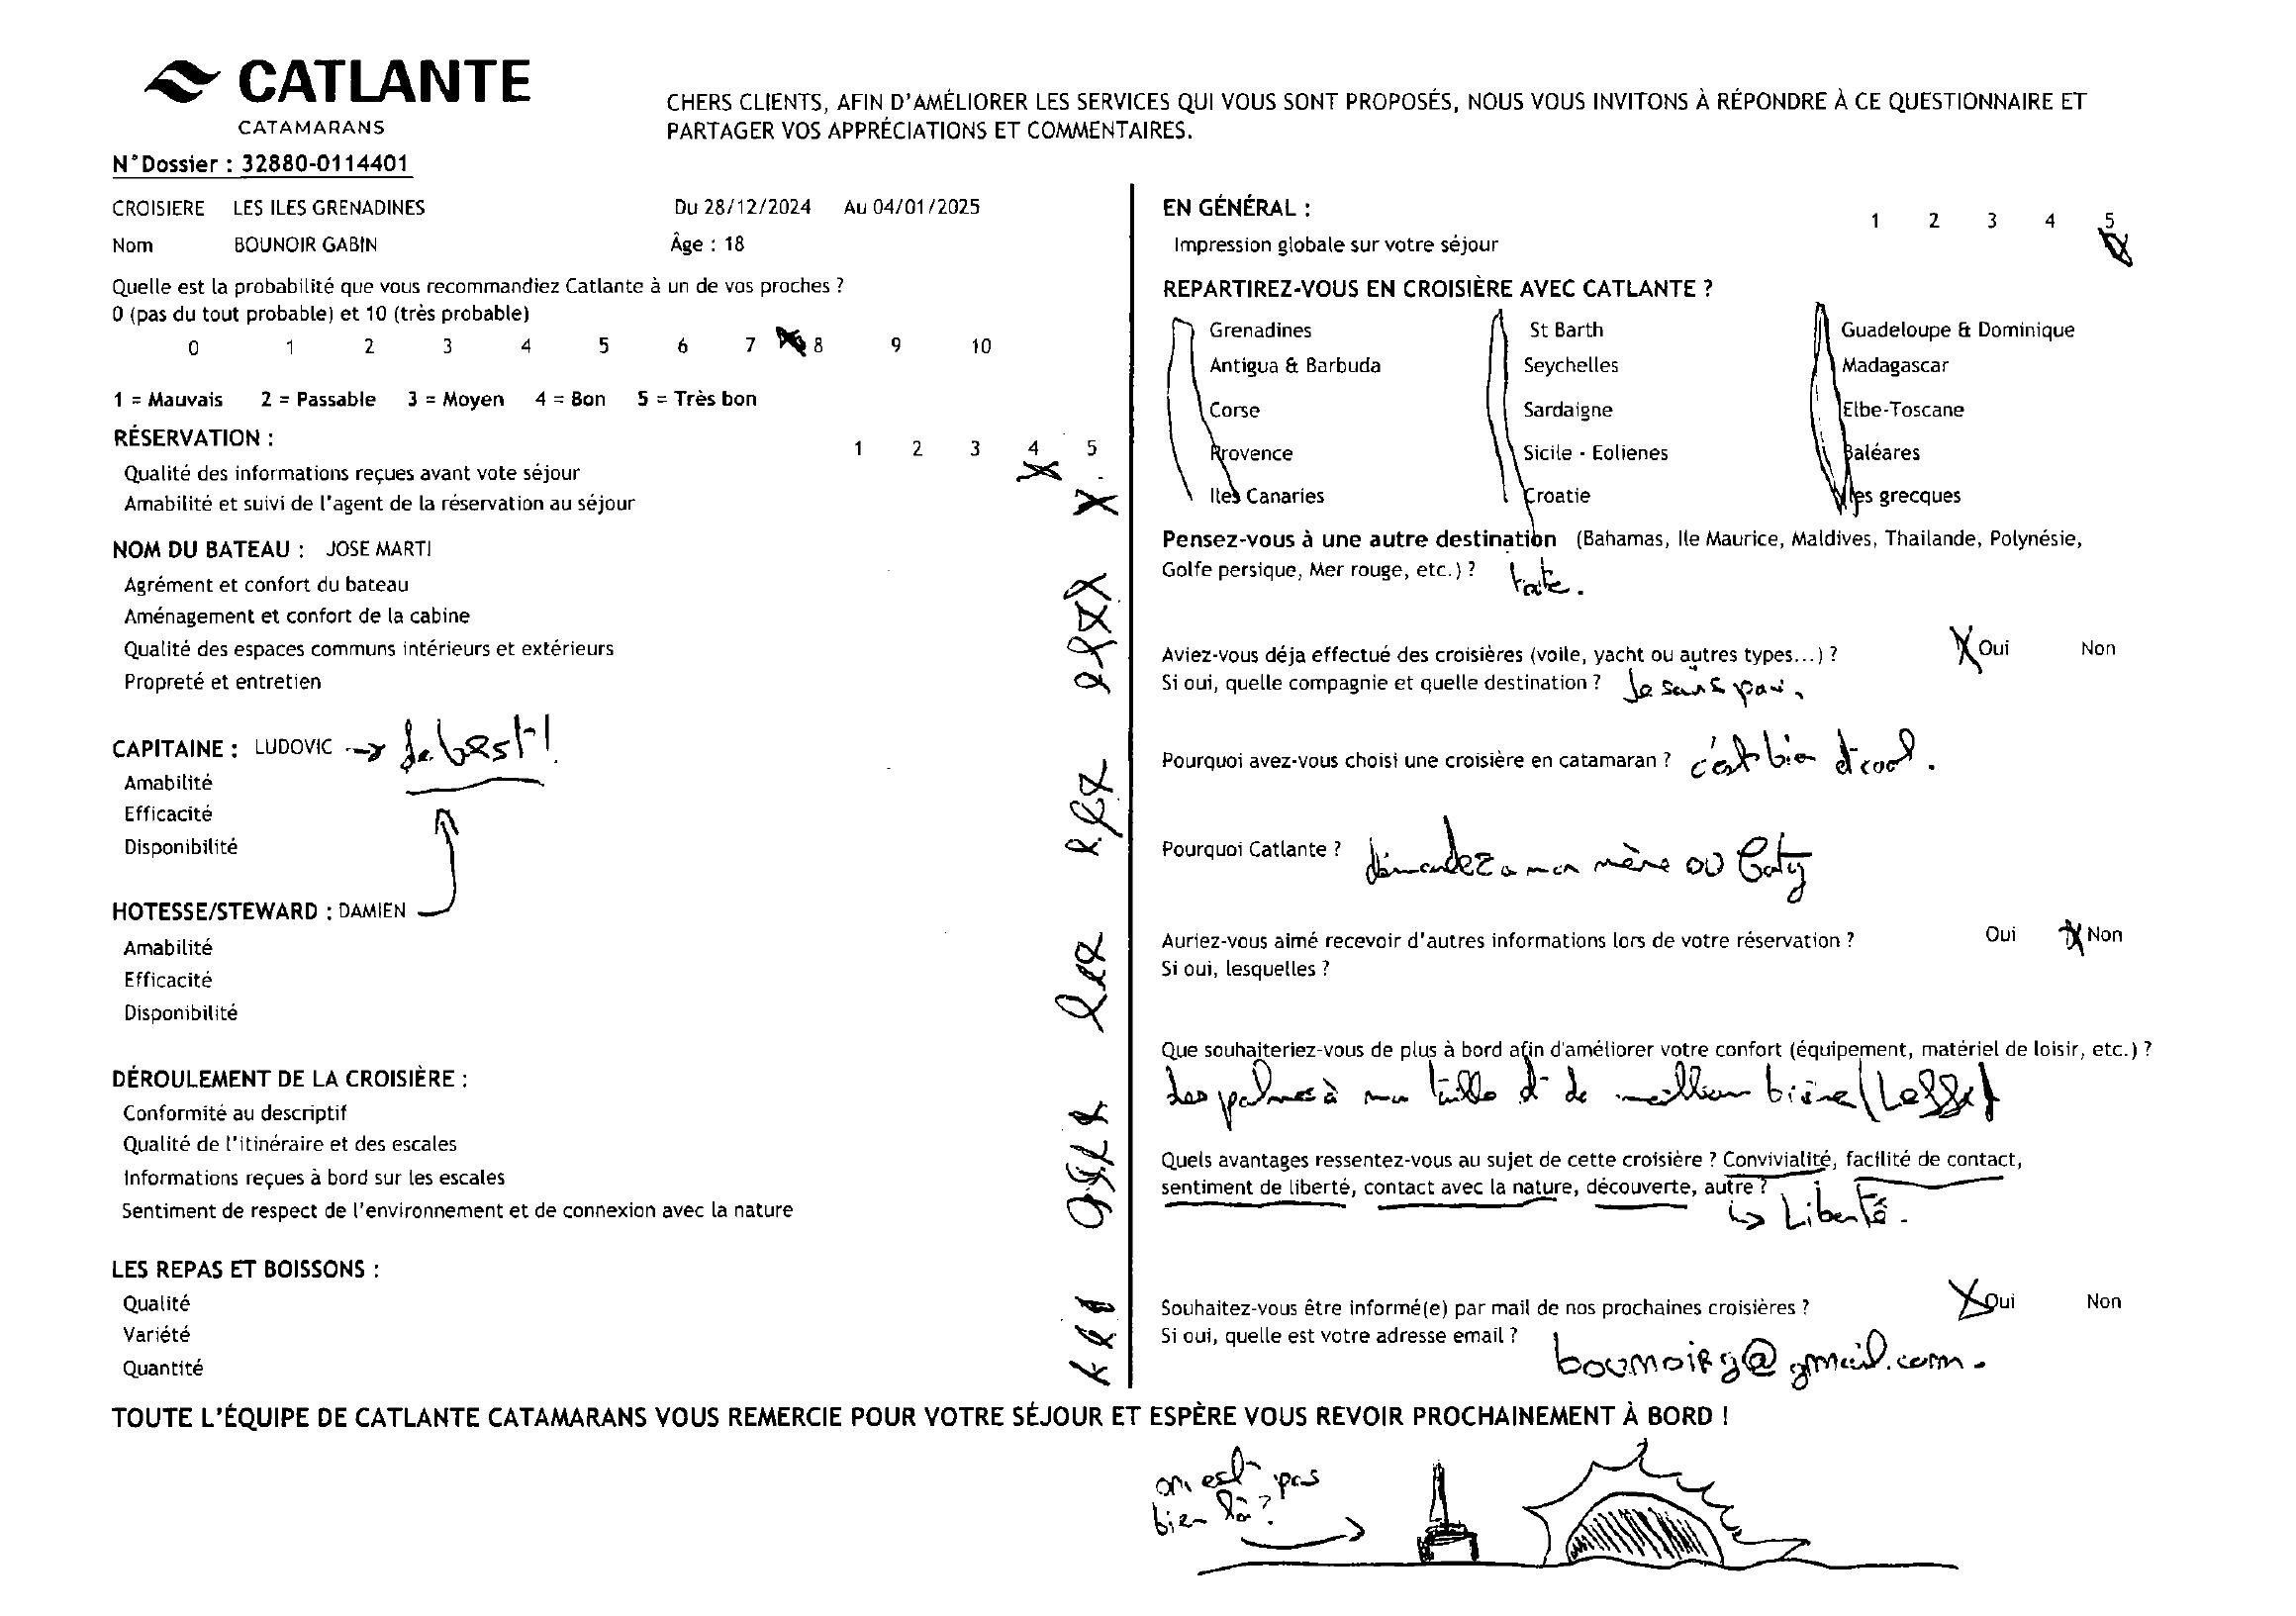 CATLANTE
CATAMARANS
CHERS CLIENTS, AFIN D'AMÉLIORER LES SERVICES QUI VOUS SONT PROPOSÉS, NOUS VOUS INVITONS À RÉPONDRE À CE QUESTIONNAIRE ET
PARTAGER VOS APPRÉCIATIONS ET COMMENTAIRES.
N°Dossier : 32880-0114401
CROISIERE LES ILES GRENADINES Du 28/12/2024 Au 04/01/2025
Nom BOUNOIR GABIN Âge : 18
Quelle est la probabilité que vous recommandiez Catlante à un de vos proches ?
0 (pas du tout probable) et 10 (très probable)
0 1 2 3 4 5 6 7 8 9 10
1 = Mauvais 2 = Passable 3 = Moyen 4 = Bon 5 = Très bon
RÉSERVATION :
1 2 3 4 5
Qualité des informations reçues avant vote séjour
Amabilité et suivi de l'agent de la réservation au séjour
NOM DU BATEAU : JOSE MARTI
Agrément et confort du bateau
Aménagement et confort de la cabine
Qualité des espaces communs intérieurs et extérieurs
Propreté et entretien
CAPITAINE : LUDOVIC → best !
Amabilité
Efficacité
Disponibilité
HOTESSE/STEWARD : DAMIEN
Amabilité
Efficacité
Disponibilité
DÉROULEMENT DE LA CROISIÈRE :
Conformité au descriptif
Qualité de l'itinéraire et des escales
Informations reçues à bord sur les escales
Sentiment de respect de l'environnement et de connexion avec la nature
LES REPAS ET BOISSONS :
Qualité
Variété
Quantité
EN GÉNÉRAL :
1 2 3 4 5
Impression globale sur votre séjour
REPARTIREZ-VOUS EN CROISIÈRE AVEC CATLANTE ?
Grenadines St Barth Guadeloupe & Dominique
Antigua & Barbuda Seychelles Madagascar
Corse Sardaigne Elbe-Toscane
Provence Sicile - Eolienes Baléares
Iles Canaries Croatie Iles grecques
Pensez-vous à une autre destination (Bahamas, Ile Maurice, Maldives, Thailande, Polynésie,
Golfe persique, Mer rouge, etc.) ? toute.
Aviez-vous déja effectué des croisières (voile, yacht ou autres types...) ? Oui Non
Si oui, quelle compagnie et quelle destination ? Je sais pas.
Pourquoi avez-vous choisi une croisière en catamaran ? c'est bien et cool.
Pourquoi Catlante ? demandez a mon mère ou Caty
Auriez-vous aimé recevoir d'autres informations lors de votre réservation ? Oui Non
Si oui, lesquelles ?
Que souhaiteriez-vous de plus à bord afin d'améliorer votre confort (équipement, matériel de loisir, etc.) ?
des palmes à ma taille et de meilleur bière (Leffe)
Quels avantages ressentez-vous au sujet de cette croisière ? Convivialité, facilité de contact,
sentiment de liberté, contact avec la nature, découverte, autre ?
↳ Liberté.
Souhaitez-vous être informé(e) par mail de nos prochaines croisières ? Oui Non
Si oui, quelle est votre adresse email ? bounoirg@gmail.com.
TOUTE L'ÉQUIPE DE CATLANTE CATAMARANS VOUS REMERCIE POUR VOTRE SÉJOUR ET ESPÈRE VOUS REVOIR PROCHAINEMENT À BORD !
on est pas
bien là ?